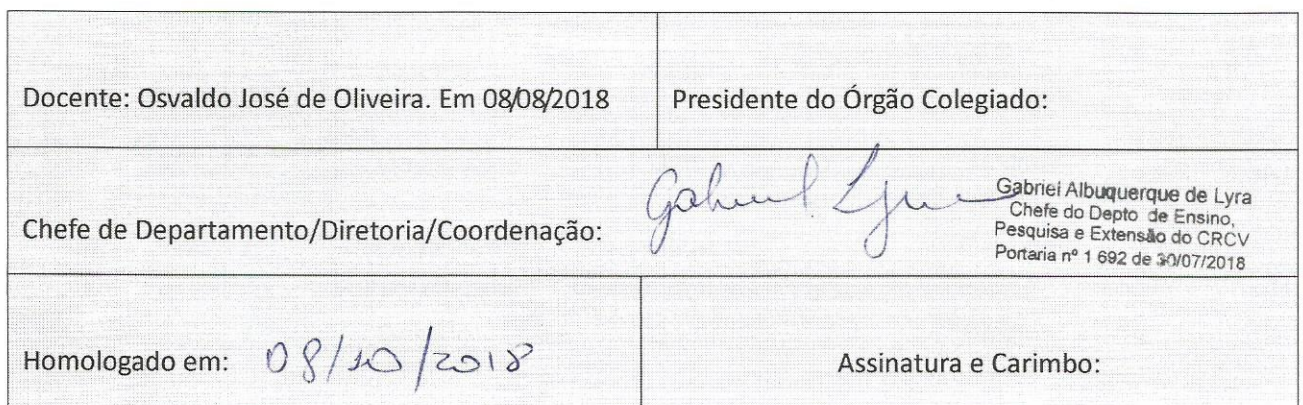 Docente: Osvaldo José de Oliveira. Em 08/08/2018
Presidente do Órgão Colegiado:
Chefe de Departamento/Diretoria/Coordenação:
Gabriel Lyra
Gabriel Albuquerque de Lyra
Chefe do Depto de Ensino,
Pesquisa e Extensão do CRCV
Portaria nº 1 692 de 30/07/2018
Homologado em: 08/10/2018
Assinatura e Carimbo: